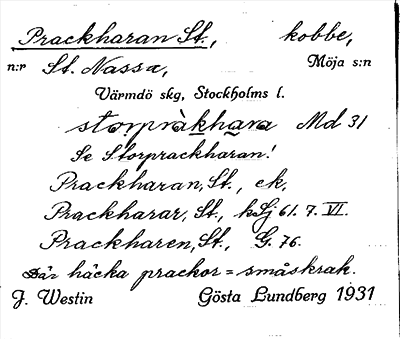 Prackharan St., kobbe,
n:r St. Nassa, Möja s:n
Värmdö skg, Stockholms l.
storpràkhara Md 31
Se Storprackharan!
Prackharan, St., ek.
Prackharar, St., kSj 61. 7. VI.
Prackharen, St., G. 76.
Där häcka prackor = småskrak.
J. Westin Gösta Lundberg 1931